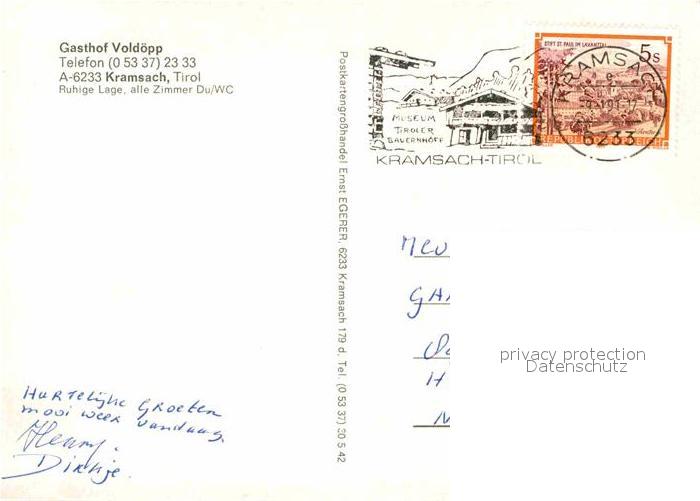 Gasthof Voldöpp
Telefon (0 53 37) 23 33
A-6233 Kramsach, Tirol
Ruhige Lage, alle Zimmer Du/WC
Postkartengroßhandel Ernst EGERER, 6233 Kramsach 179 d, Tel. (0 53 37) 30 5 42
MUSEUM
TIROLER
BAUERNHÖFE
KRAMSACH-TIROL
STIFT ST. PAUL IM LAVANTTAL
5s
REPUBLIK
KRAMSACH
6233
Mev
GA
H
privacy protection
Datenschutz
Hartelijke Groeten
mooi weer vandaag.
Henny.
Dirkje.